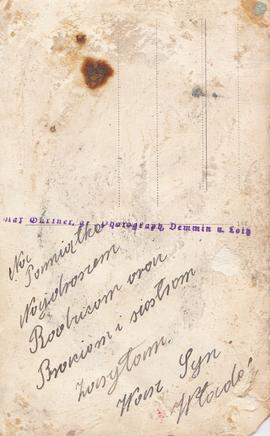 Photograph, Demmin u. Loitz
Na
Pamiątke
Najdroszem
Rodzicom oraz
Braciom i siostrom
zasyłam.
Wasz Syn
Władek